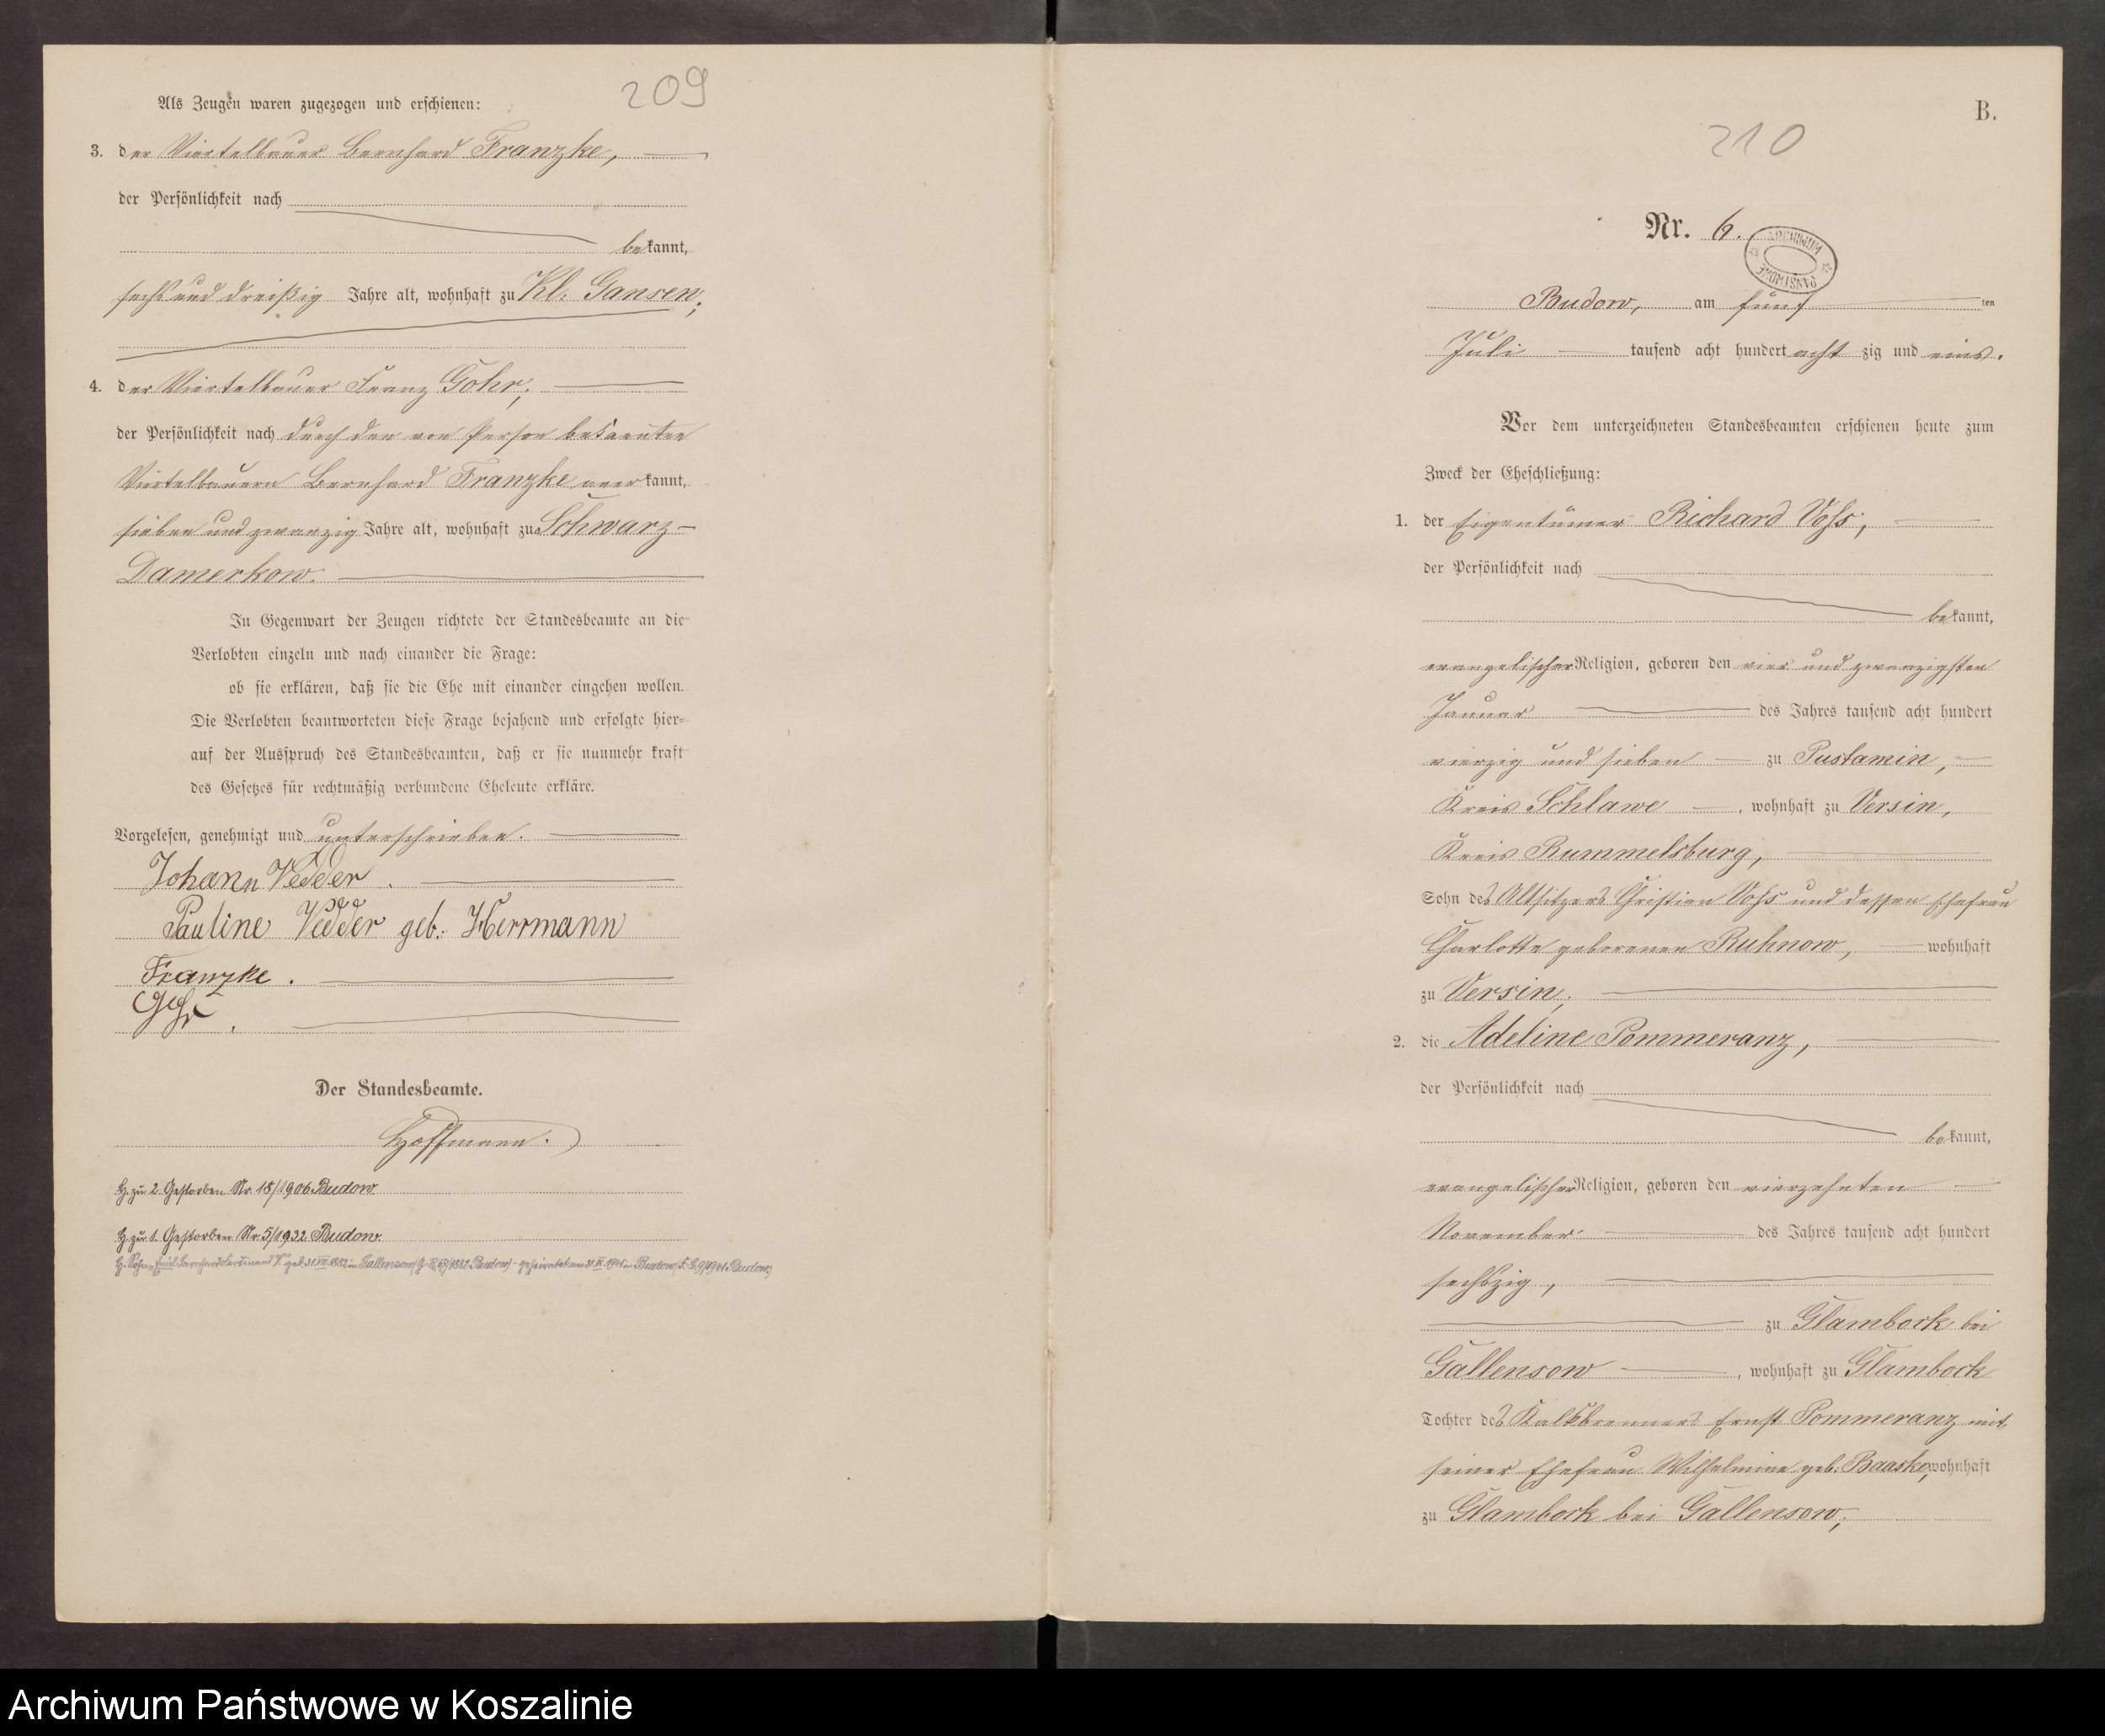 209
Als Zeugen waren zugezogen und erschienen:
3. der Viertelbauer Bernhard Franzke,
der Persönlichkeit nach
bekannt,
sechs und dreißig Jahre alt, wohnhaft zu Kl: Gansen;
4. der Viertelbauer Franz Gohr;
der Persönlichkeit nach durch den von Person bekannten
Viertelbauern Bernhard Franzke anerkannt,
sieben und zwanzig Jahre alt, wohnhaft zu Schwarz-
Damerkow.
In Gegenwart der Zeugen richtete der Standesbeamte an die
Verlobten einzeln und nach einander die Frage:
ob sie erklären, daß sie die Ehe mit einander eingehen wollen.
Die Verlobten beantworteten diese Frage bejahend und erfolgte hier-
auf der Ausspruch des Standesbeamten, daß er sie nunmehr kraft
des Gesetzes für rechtmäßig verbundene Eheleute erkläre.
Vorgelesen, genehmigt und unterschrieben.
Johann Vedder.
Pauline Vedder geb: Herrmann
Franzke.
Gohr.
Der Standesbeamte.
Hoffmann.
H. zu 2. Gestorben Nr. 18/1906 Budow.
H. zu 1. Gestorben Nr. 5/1932 Budow.
H. Sohn, Emil Bernhard Ferdinand V. geb. 31.VII.1882 in Gallensow - geheiratet am in Budow, 9/1941 Budow
B.
210
Nr. 6.
ARCHIWUM PAŃSTWOWE
Budow, am fünf ten
Juli tausend acht hundert acht zig und eins.
Vor dem unterzeichneten Standesbeamten erschienen heute zum
Zweck der Eheschließung:
1. der Eigentümer Richard Voss,
der Persönlichkeit nach
bekannt,
evangelischer Religion, geboren den vier und zwanzigsten
Januar des Jahres tausend acht hundert
vierzig und sieben zu Pustamin,
Kreis Schlawe, wohnhaft zu Versin,
Kreis Rummelsburg,
Sohn des Altsitzers Christian Voss und dessen Ehefrau
Charlotte geborenen Ruhnow, wohnhaft
zu Versin;
2. die Adeline Pommeranz,
der Persönlichkeit nach
bekannt,
evangelischer Religion, geboren den vierzehnten
November des Jahres tausend acht hundert
sechszig,
zu Glambock bei
Gallensow, wohnhaft zu Glambock
Tochter des Kalkbrenners Ernst Pommeranz mit
seiner Ehefrau Wilhelmine geb: Baaske, wohnhaft
zu Glambock bei Gallensow;
Archiwum Państwowe w Koszalinie